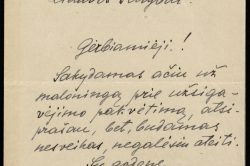 Gerbiamieji!
Sakydamas ačiu už
maloningą prie užsiga-
vėjimo pakvėtimą, atsi-
prašau, bet, budamas
nesveikas, negalėsiu ateiti.
Su godone